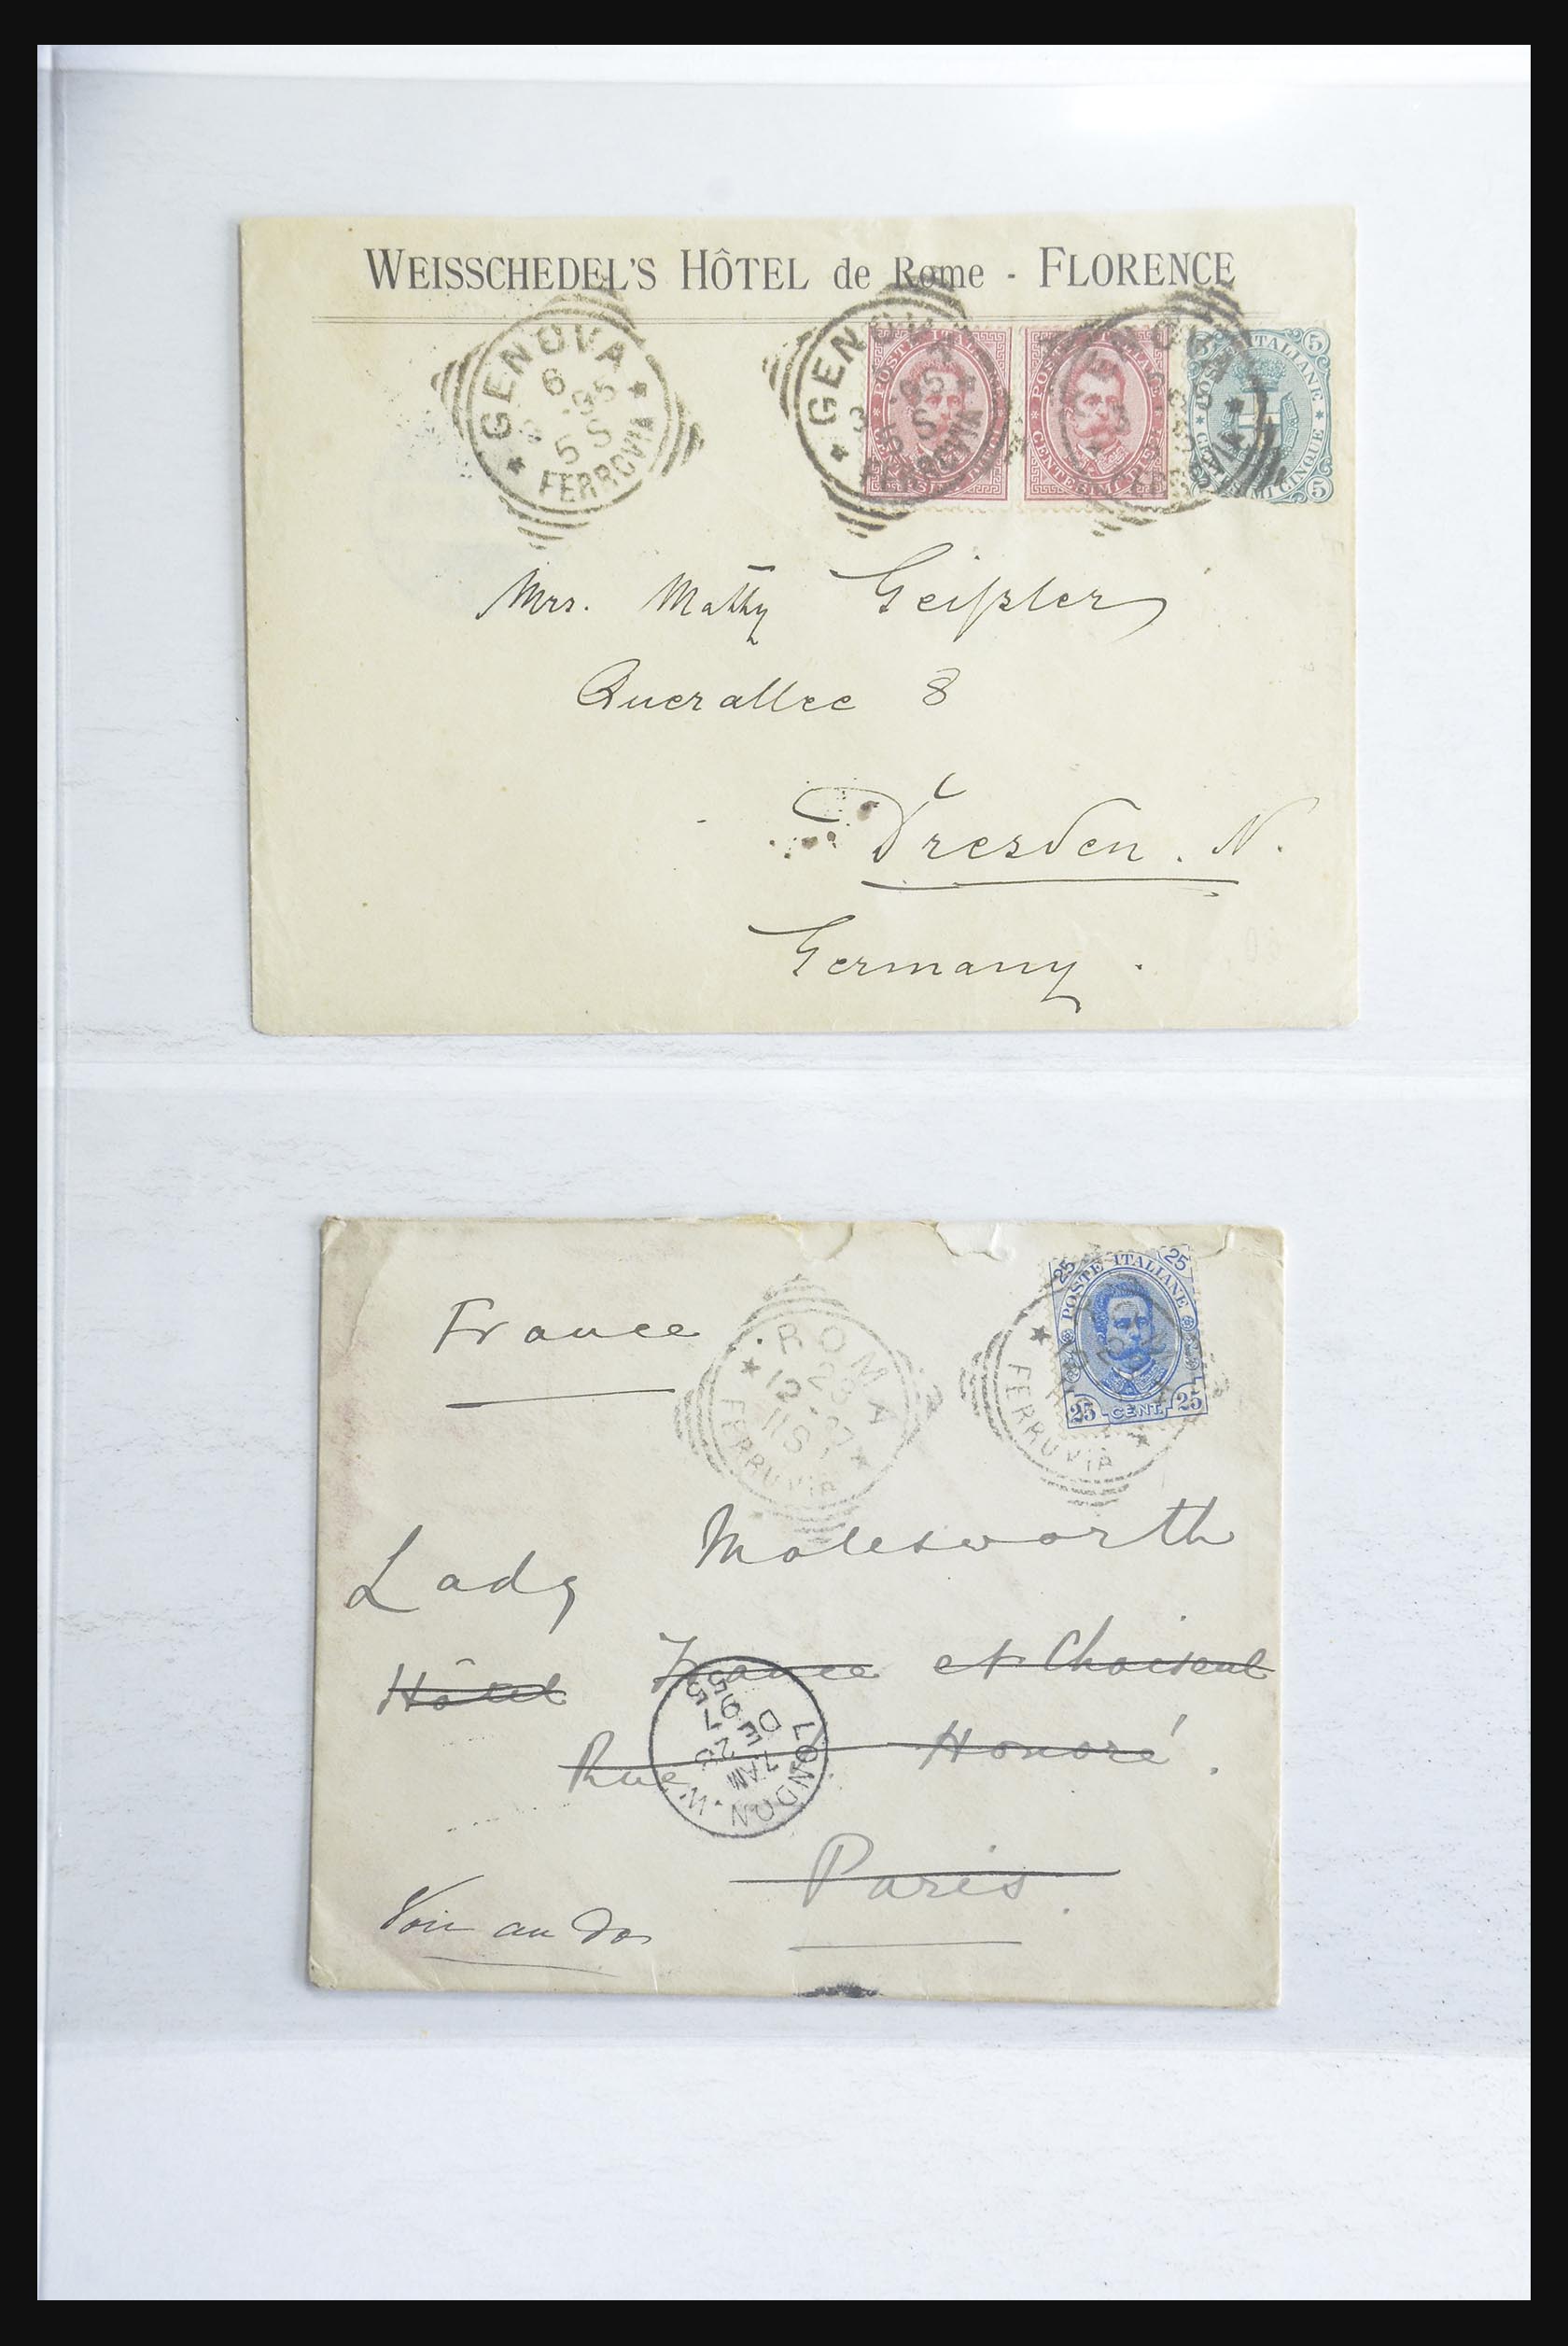 WEISSCHEDEL'S HÔTEL de Rome - FLORENCE
GENOVA
6
3 - 95
5 S
FERROVIA
GENOVA
3 - 95
5 S
FERROVIA
POSTE ITALIANE
CENTESIMI DIECI
POSTE ITALIANE
CENTESIMI DIECI
5 5
POSTE ITALIANE
CENTESIMI CINQUE
5
Mrs. Mathy Geißler
Querallee 8
Dresden. N.
Germany.
25 25
POSTE ITALIANE
25 CENT. 25
FERROVIA
France
ROMA
23
12 - 97
11 S
FERROVIA
Lady Molesworth
Hôtel France et Choiseul
Rue Honoré.
Paris.
LONDON. W.
7 AM
DE
97
55
Voir au dos